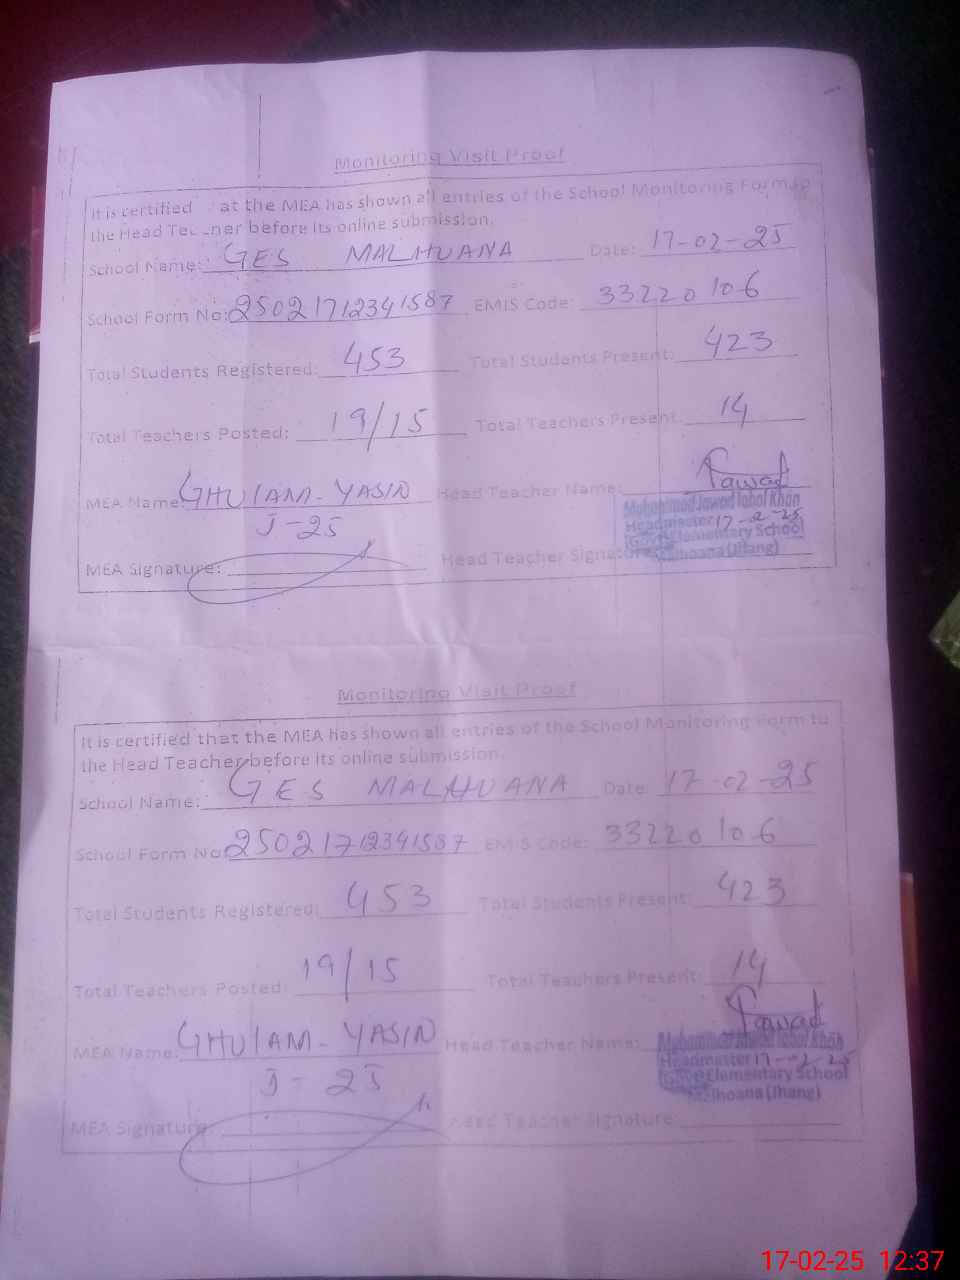 Monitoring Visit Proof
It is certified at the MEA has shown all entries of the School Monitoring Form to
the Head Teacher before its online submission.
School Name: GES MALHUANA Date: 17-02-25
School Form No: 25021712341587 EMIS Code: 33220106
Total Students Registered: 453 Total Students Present: 423
Total Teachers Posted: 19/15 Total Teachers Present: 14
MEA Name: GHULAM-YASIN Head Teacher Name: Jawad
J-25
Muhammad Jawad Iqbal Khan
Headmaster 17-2-25
Govt Elementary School
(Jhang)
MEA Signature: Head Teacher Signature
Monitoring Visit Proof
It is certified that the MEA has shown all entries of the School Monitoring Form to
the Head Teacher before its online submission.
School Name: GES MALHUANA Date: 17-02-25
School Form No: 25021712341587 EMIS Code: 33220106
Total Students Registered: 453 Total Students Present: 423
Total Teachers Posted: 19/15 Total Teachers Present: 14
MEA Name: GHULAM-YASIN Head Teacher Name: Jawad
J-25
Muhammad Jawad Iqbal Khan
Headmaster 17-02-25
Govt Elementary School
(Jhang)
MEA Signature: Head Teacher Signature
17-02-25 12:37